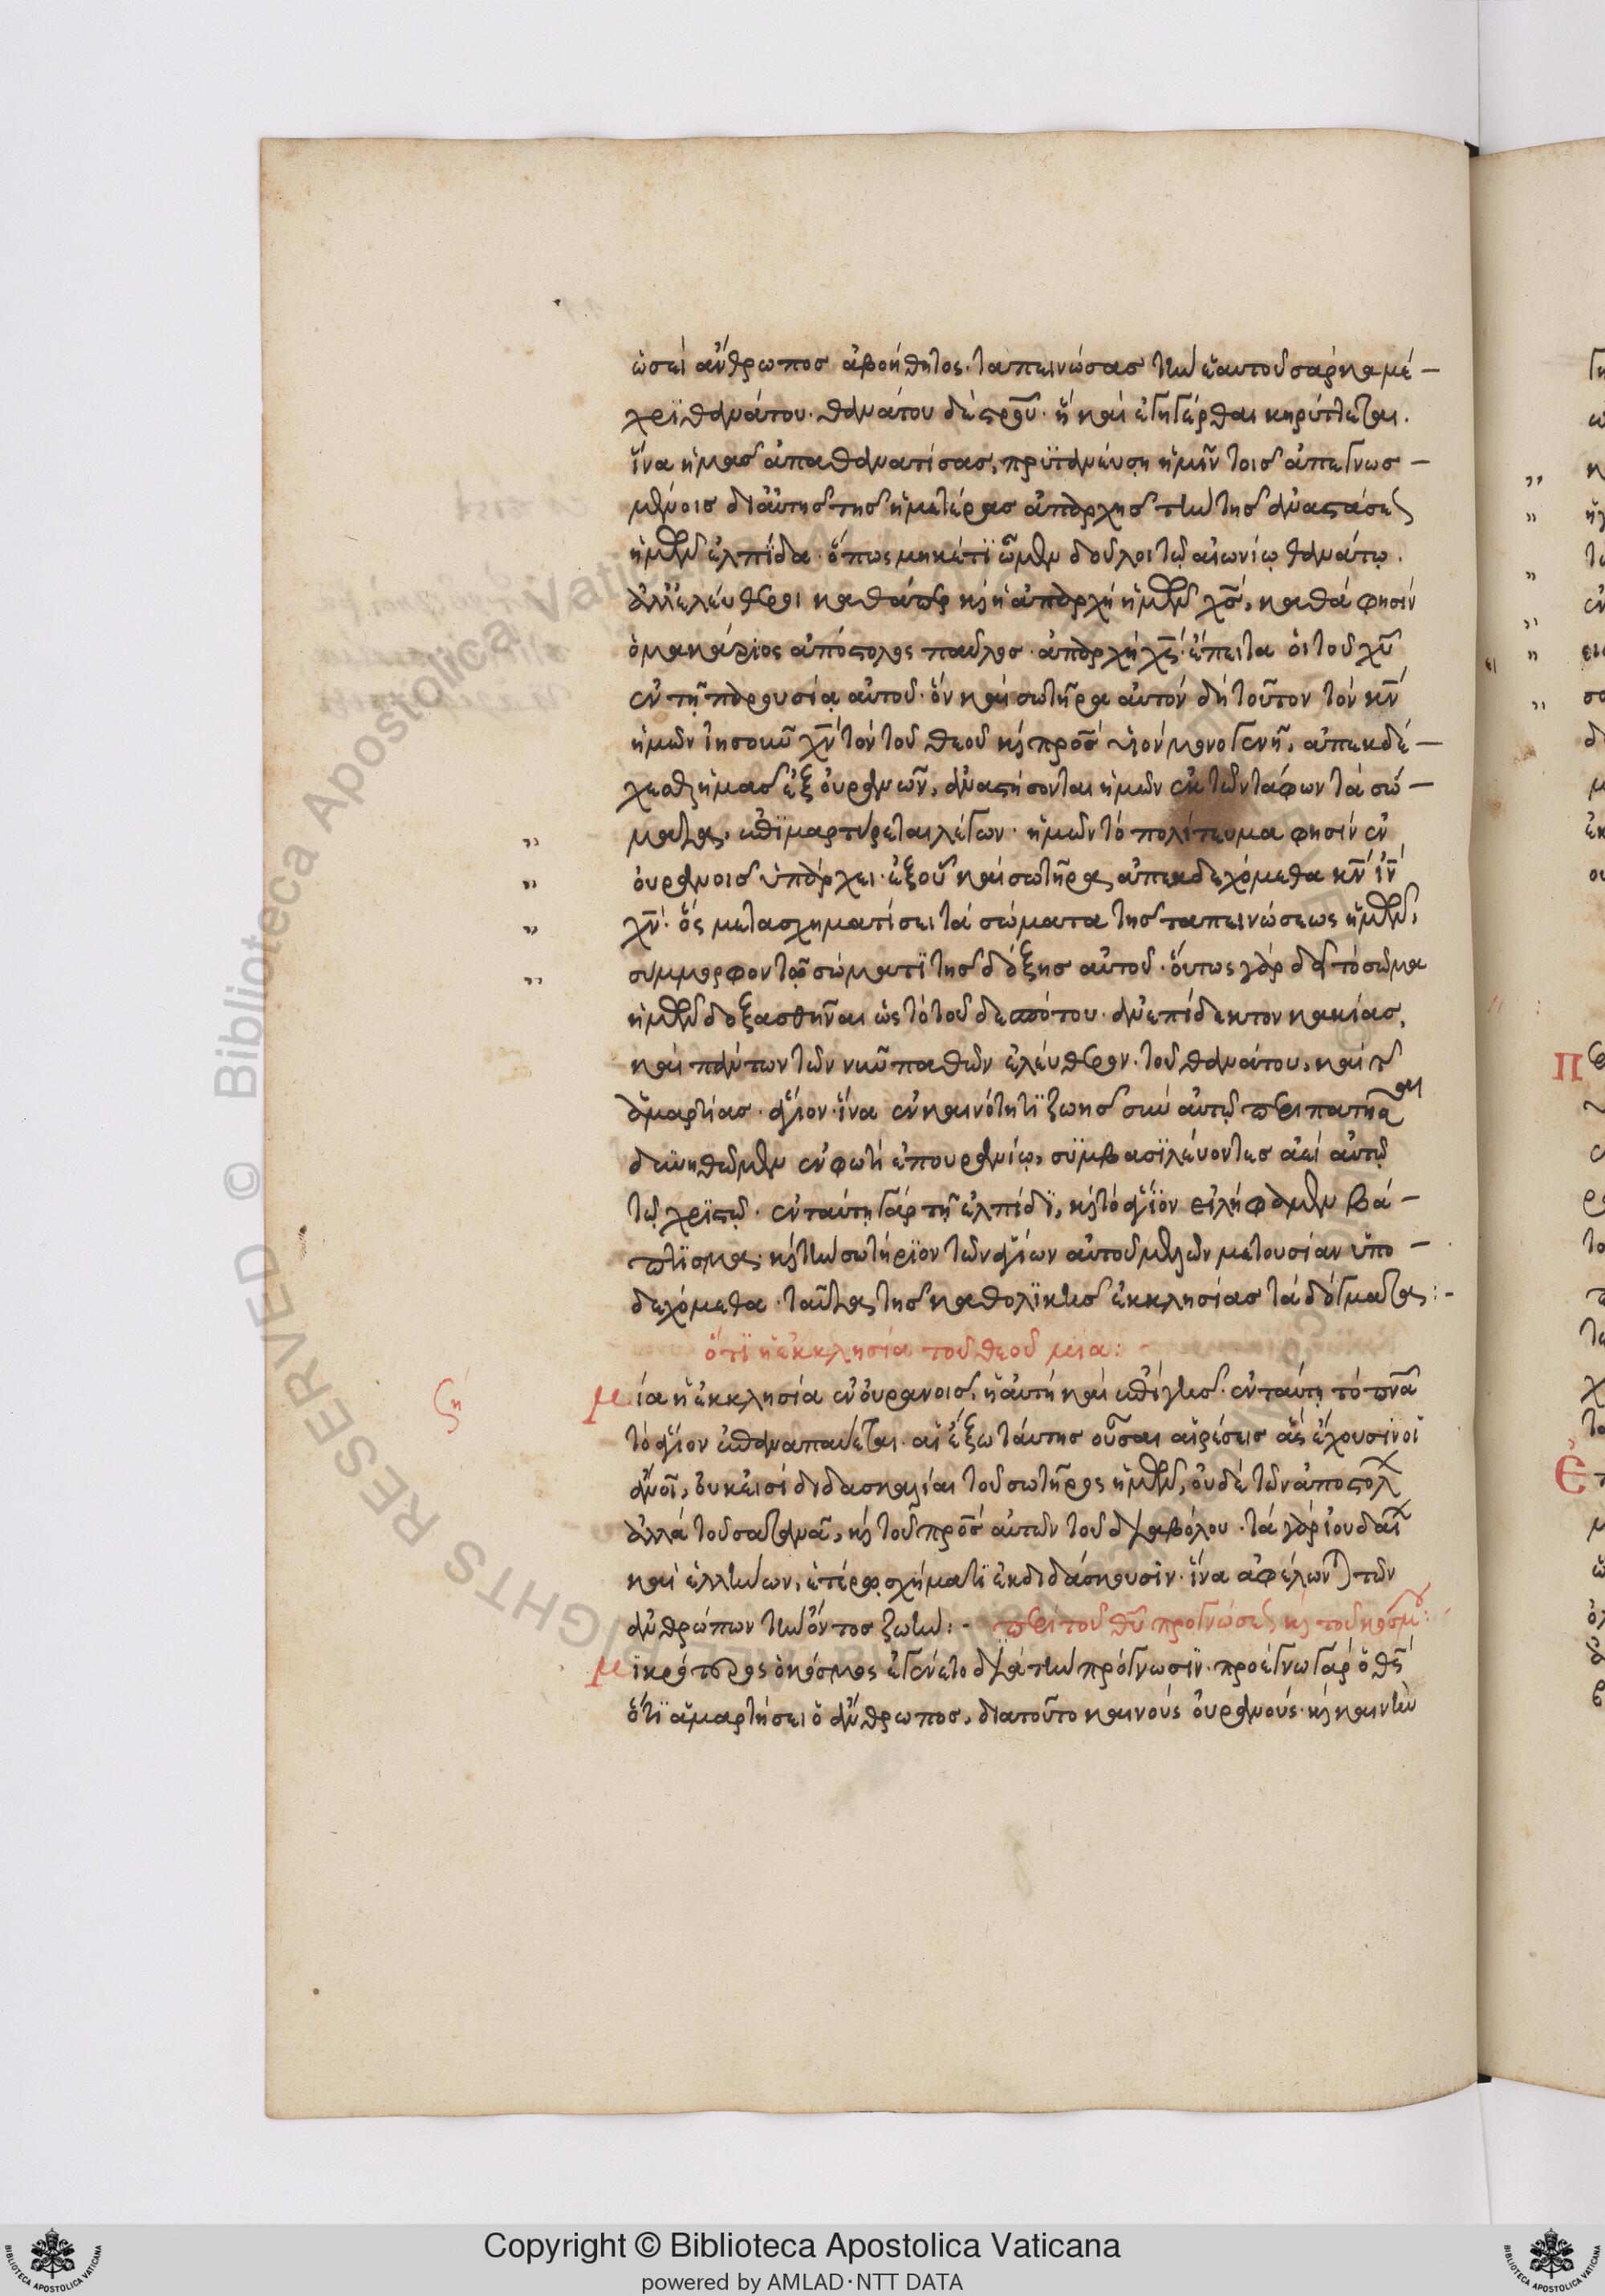 ὡσεὶ ἄνθρωπος ἀβοήθητος· ταπεινώσας τὴν ἑαυτοῦ σάρκα μέ-
χρϊ θανάτου· θανάτου δὲ στροῦ· ἣ καὶ ἐγηγέρθαι κηρύττεται.
ἵνα ἡμᾶς ἀπαθανατίσας, πρϋτανεύσῃ ἡμῖν τοῖς ἀπεγνωσ-
μένοις δι αὐτῆς τῆς ἡμετέρας ἀπαρχῆς τὴν τῆς ἀναστάσεως
ἡμῶν ἐλπίδα· ὅπως μηκέτϊ ὦμεν δοῦλοι τῷ αἰωνίῳ θανάτῳ.
ἀλλ' ἐλεύθεροι καθάπερ κ(αὶ) ἡ ἀπαρχὴ ἡμῶν χς, καθά φησιν
ὁ μακάριος ἀπόστολος παῦλος· ἀπαρχὴ χς· ἔπειτα οἱ τοῦ χυ
ἐν τῇ παρουσίᾳ αὐτοῦ· ὃν καὶ σωτῆρα αὐτὸν δὴ τοῦτον τὸν κν
ἡμῶν ἰησοῦν χν τὸν τοῦ θεοῦ κ(αὶ) πρς υἱὸν μονογενῆ, ἀπεκδέ-
χεσθαι ἡμᾶς ἐξ οὐρανῶν, ἀναστήσονται ἡμῶν ἐκ τῶν τάφων τὰ σώ-
ματα, ἐπϊμαρτύρεται λέγων· ἡμῶν τὸ πολίτευμα φησὶν ἐν
οὐρανοῖς ὑπάρχει· ἐξ οὗ καὶ σωτῆρα ἀπεκδεχόμεθα κν ιν
χν· ὃς μετασχηματίσει τὰ σώματα τῆς ταπεινώσεως ἡμῶν,
σύμμορφον τῷ σώματϊ τῆς δόξης αὐτοῦ· οὕτως γὰρ δεῖ τὸ σῶμα
ἡμῶν δοξασθῆναι ὡς τὸ τοῦ δεσπότου· ἀνεπίδεκτον κακίας,
καὶ πάντων τῶν νῦν παθῶν ἐλεύθερον· τοῦ θανάτου, καὶ τ(ῆς)
ἁμαρτίας· ἅγιον· ἵνα ἐν καινότητϊ ζωῆς σὺν αὐτῷ περιπατῆσαι
δυνηθῶμεν ἐν φωτὶ ἐπουρανίῳ, συμβασϊλεύοντες ἀεὶ αὐτῷ
τῷ χρϊστῷ· ἐν ταύτῃ γὰρ τῇ ἐλπίδϊ, κ(αὶ) τὸ ἅγϊον εἰλήφαμεν βά-
πτϊσμα· κ(αὶ) τὴν σωτήρϊον τῶν ἁγίων αὐτοῦ μελῶν μετουσίαν ὑπο-
δεχόμεθα· ταῦτα τῆς καθολϊκῆς ἐκκλησίας τὰ δόγματα:-
ὅτϊ ἡ ἐκκλησία τοῦ θεοῦ μία:
ζη μία ἡ ἐκκλησία ἐν οὐρανοῖς, ἡ αὐτὴ καὶ ἐπὶ γῆς· ἐν ταύτῃ τὸ πνα
τὸ ἅγιον ἐπαναπαύεται· αἱ ἔξω ταύτης οὖσαι αἱρέσεις ἃς ἔχουσιν οἱ
ἀνοι, οὐκ εἰσὶ διδασκαλίαι τοῦ σωτῆρος ἡμῶν, οὐδὲ τῶν ἀποστόλ
ἀλλὰ τοῦ σατανᾶ, κ(αὶ) τοῦ πρς αὐτῶν τοῦ διαβόλου· τὰ γὰρ ἰουδαί
καὶ ἑλλήνων, ἑτέρῳ σχήματϊ ἐκδιδάσκουσιν· ἵνα ἀφέλωνται τῶν
ἀνθρώπων τὴν ὄντος ζωήν:- περὶ τοῦ θυ προγνώσεως κ(αὶ) τοῦ κόσμου:
μϊκρόφορος ὁ κόσμος ἐγένετο διὰ τὴν πρόγνωσϊν· προέγνω γὰρ ὁ θς
ὅτϊ ἁμαρτήσει ὁ ἄνθρωπος, διατοῦτο καινοὺς οὐρανούς· κ(αὶ) καινὴν